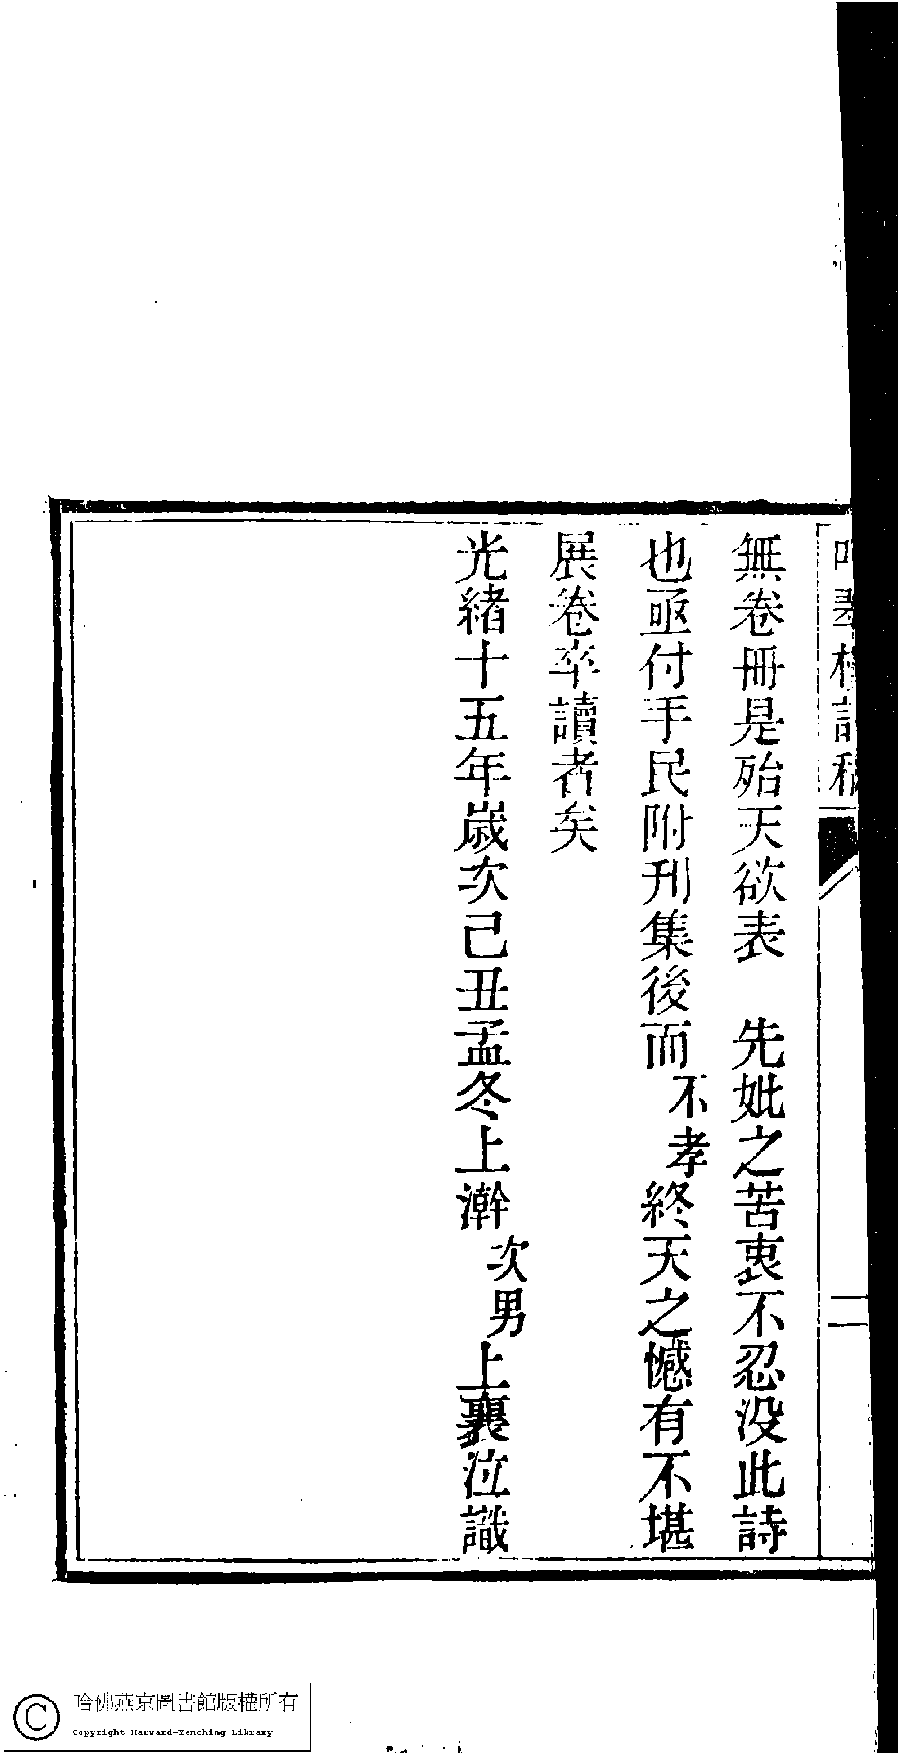 無卷冊是殆天欲表　先妣之苦衷不忍没此詩
也亟付手民附刊集後而不孝終天之憾有不堪
展卷卒讀者矣
光緒十五年歲次己丑孟冬上澣次男上襄泣識
二
哈佛燕京圖書館版權所有
Copyright Harvard-Yenching Library